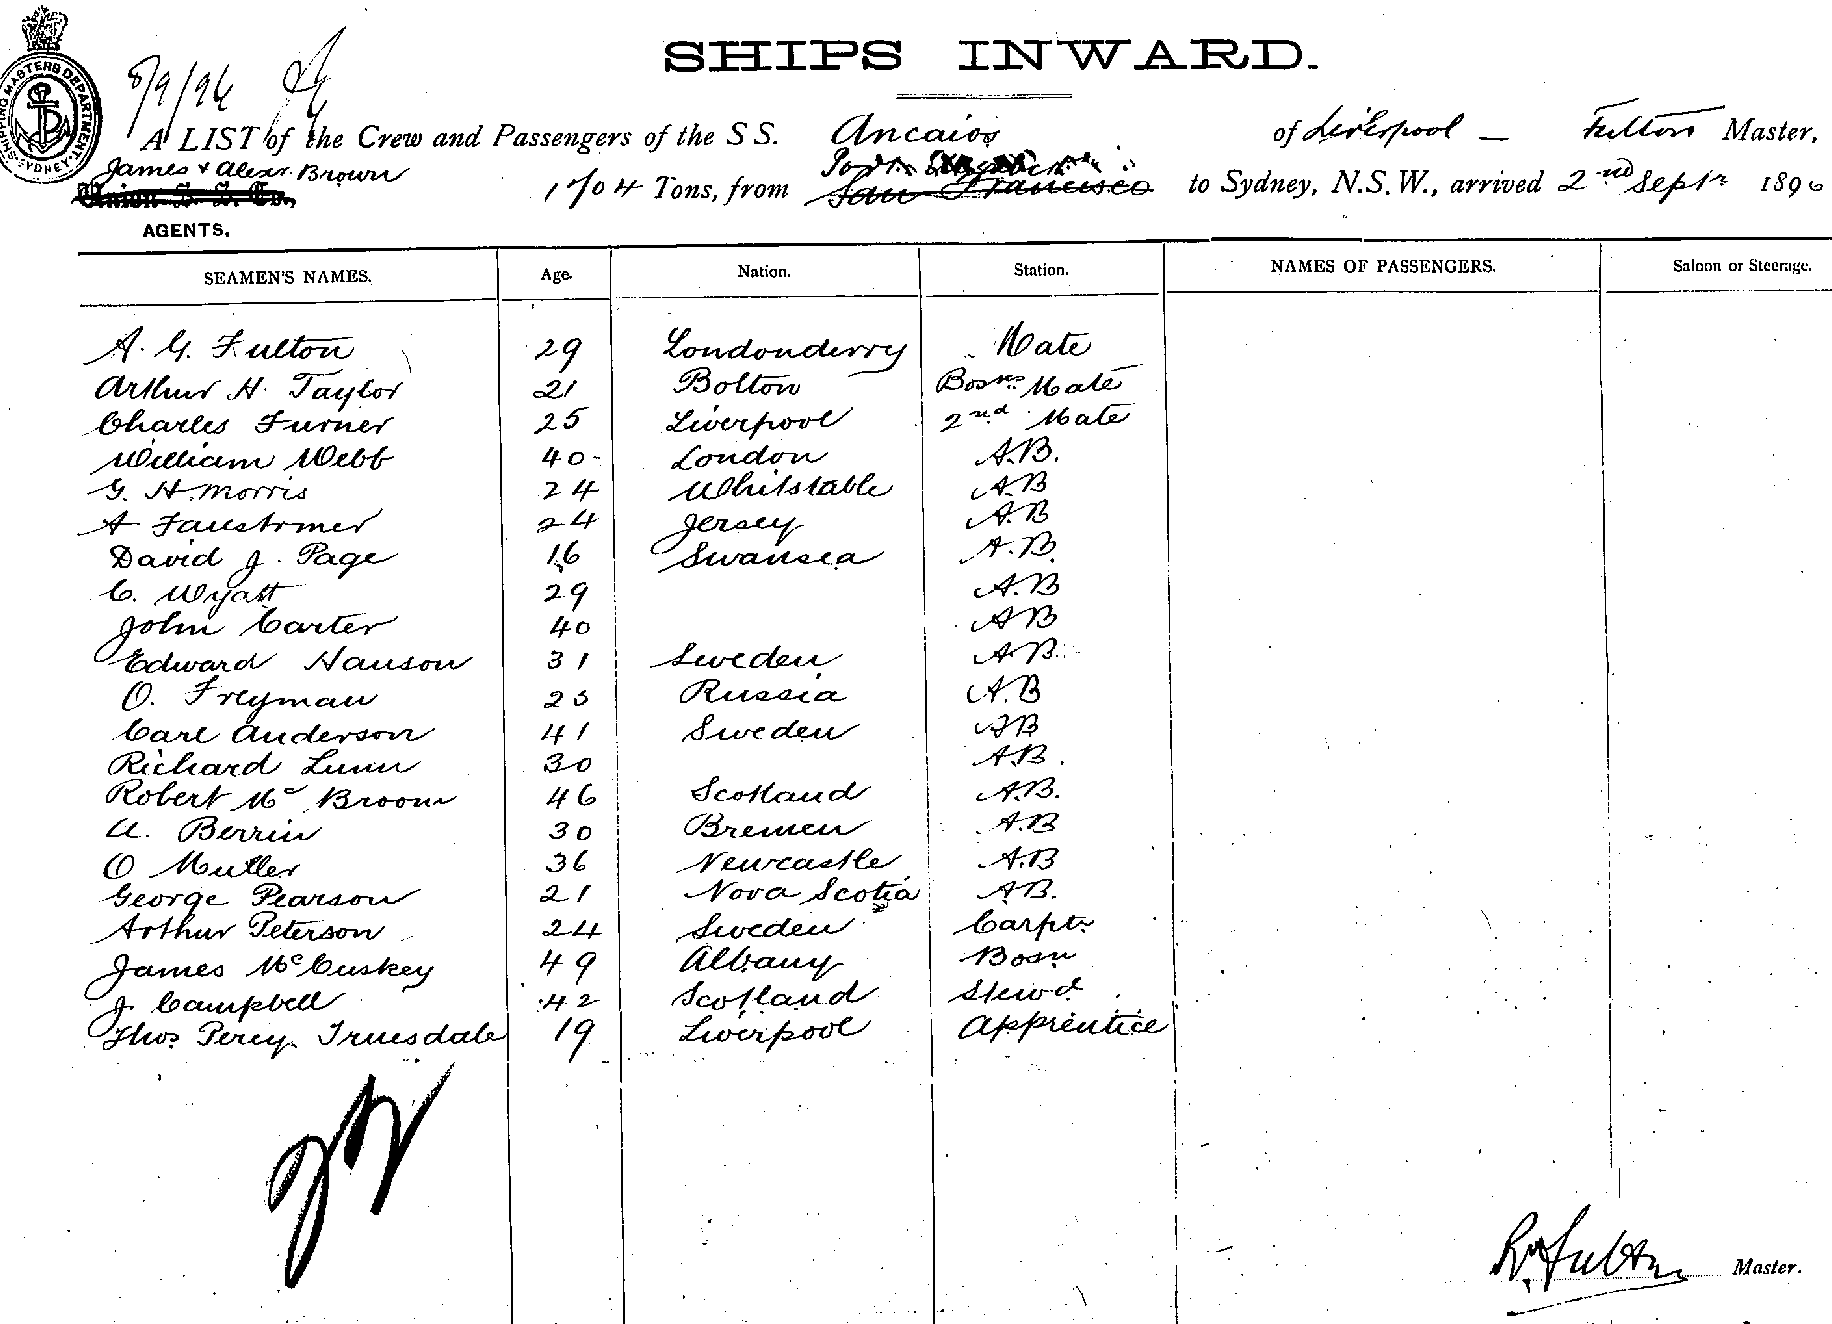 SHIPPING MASTERS DEPARTMENT. SYDNEY.
8/9/96
SHIPS INWARD.
A LIST of the Crew and Passengers of the S S. Ancaios of Liverpool — Fulton Master,
James & Alexr. Brown
Union S. S. Co.,
AGENTS.
1704 Tons, from San Francisco to Sydney, N.S.W., arrived 2nd Septr 1896
SEAMEN'S NAMES. Age. Nation. Station. NAMES OF PASSENGERS. Saloon or Steerage.
A. G. Fulton 29 Londonderry Mate
Arthur H. Taylor 21 Bolton Bosns Mate
Charles Turner 25 Liverpool 2nd Mate
William Webb 40 London A.B.
G. H. Morris 24 Whitstable A.B
A 24 Jersey A.B
David J. Page 16 Swansea A.B.
C. Wyatt 29 A.B
John Carter 40 AB
Edward Hanson 31 Sweden A.B.
O. Freyman 25 Russia A.B
Carl Anderson 41 Sweden AB
Richard Lunn 30 A.B.
Robert Mc Broom 46 Scotland A.B.
A. Berrin 30 Bremen A.B
O Muller 36 Newcastle A.B
George Pearson 21 Nova Scotia AB.
Arthur Peterson 24 Sweden Carptr
James McCuskey 49 Albany Bosn
J. Campbell 42 Scotland Stewd
Thos Percy Truesdale 19 Liverpool Apprentice
Fulton Master.